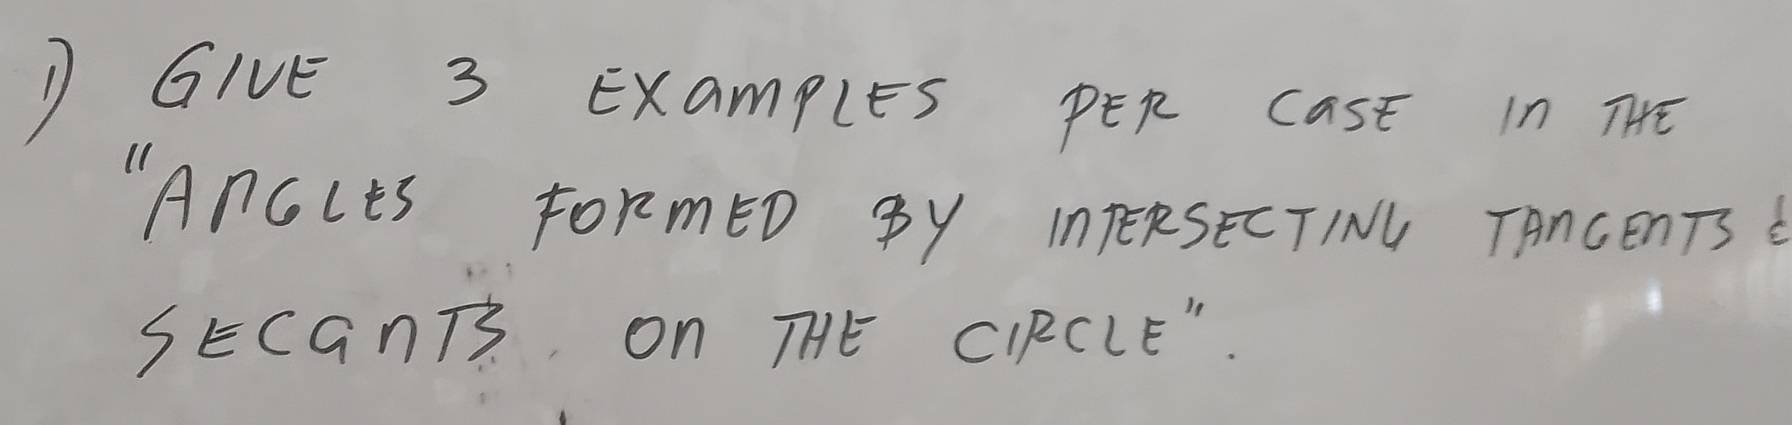 1) GIVE 3 EXAMPLES PER CASE IN THE
"ANGLES FORMED BY INTERSECTING TANGENTS &
SECANTS ON THE CIRCLE".